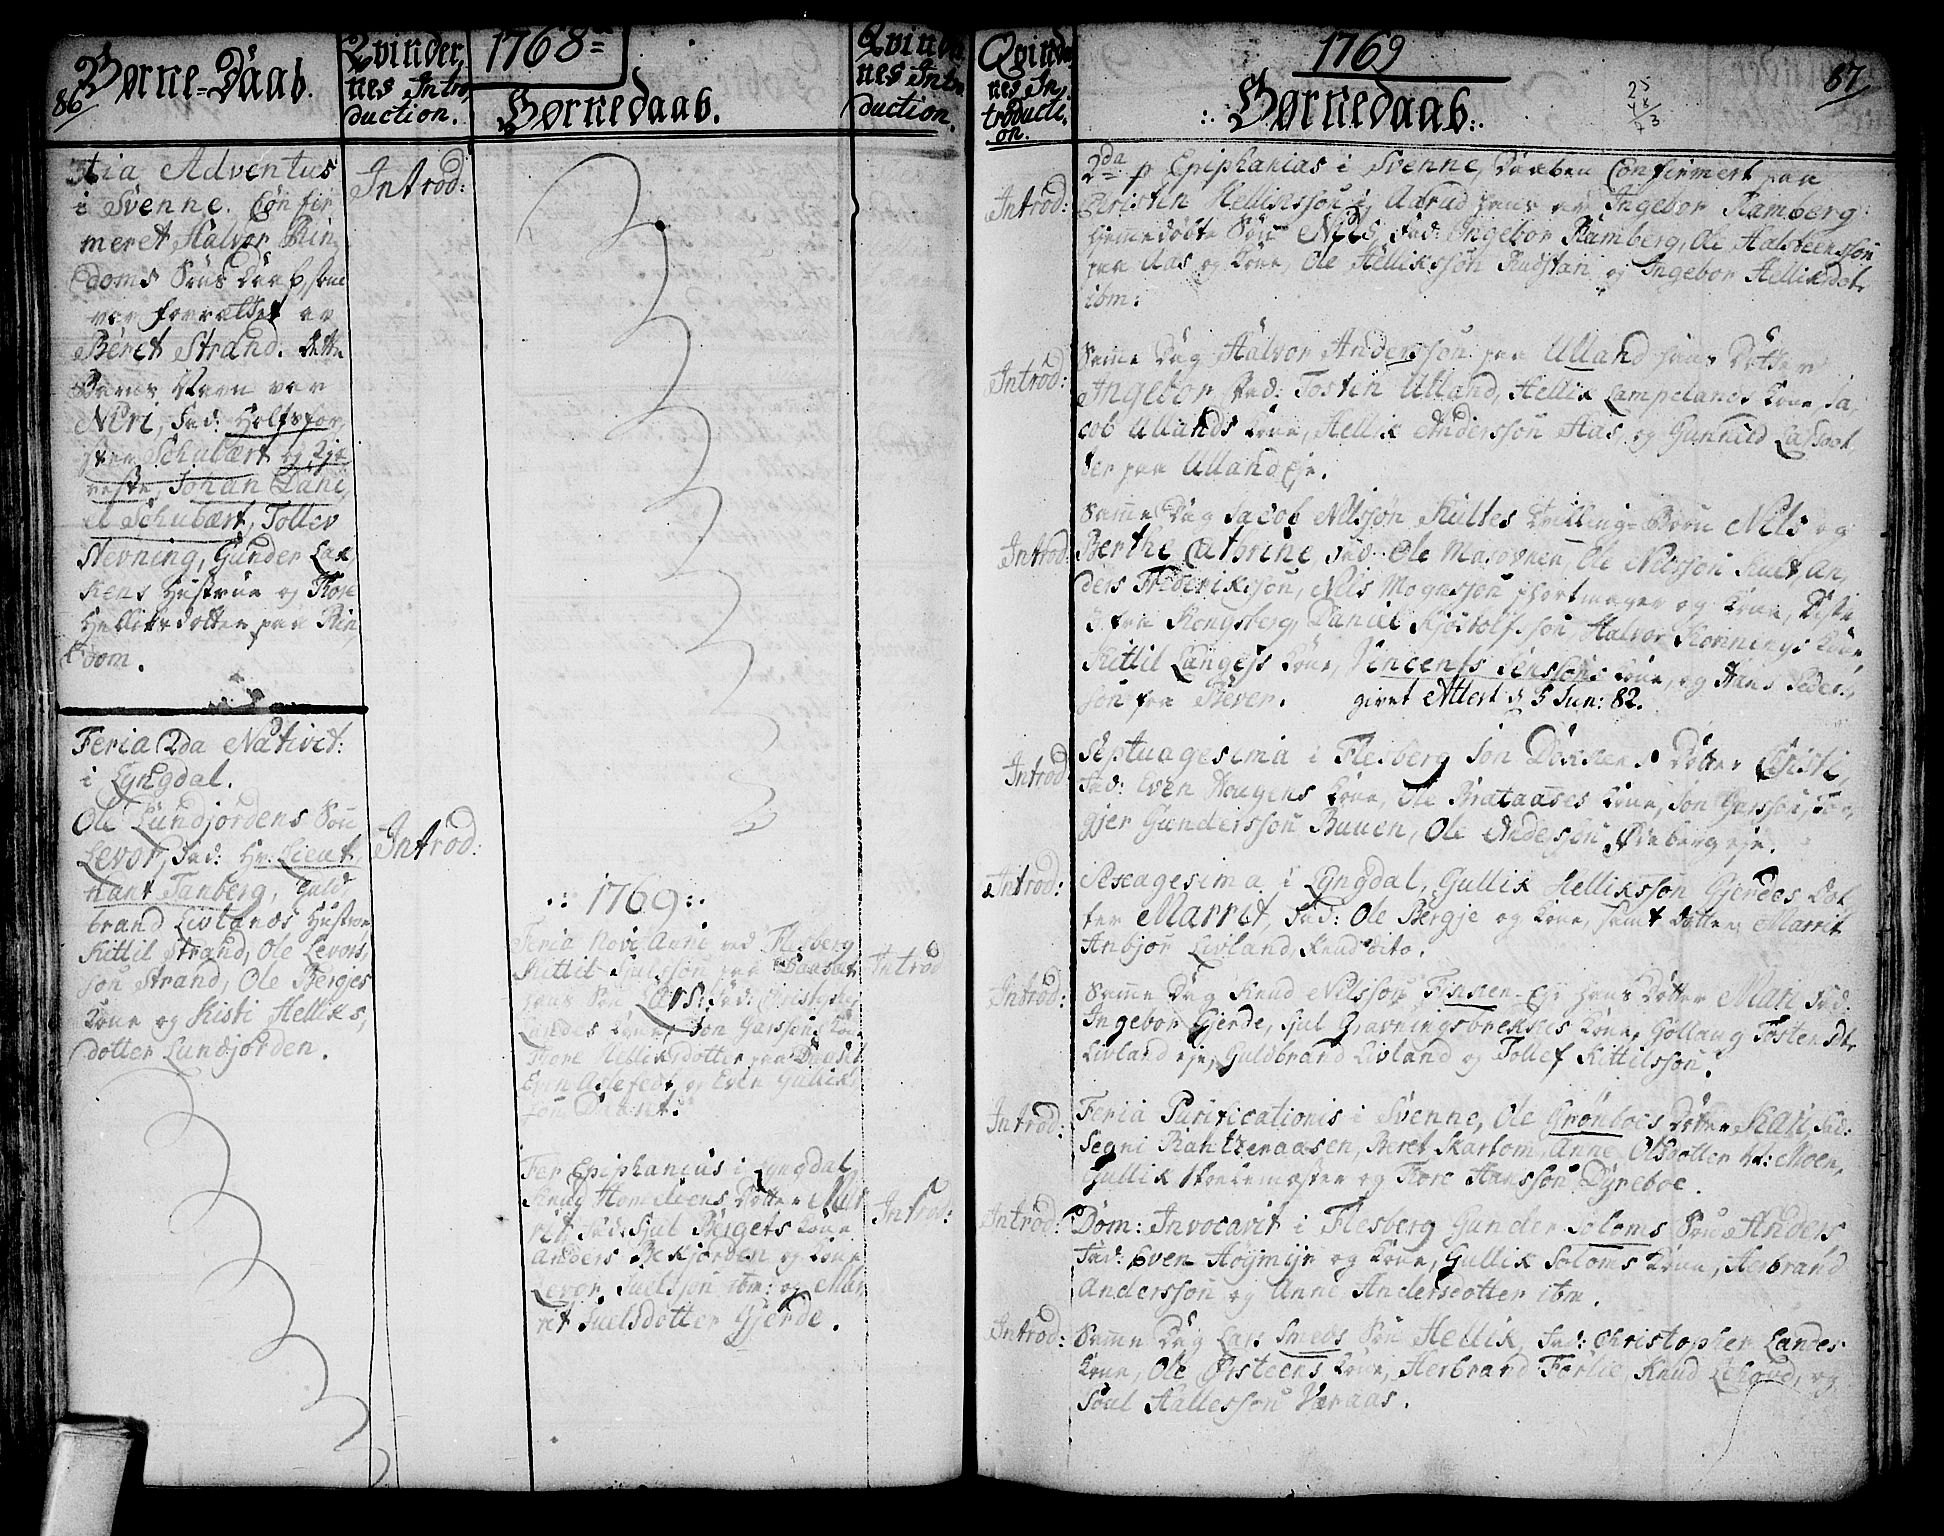 86
Børne-Daab.
Qvinder,
nes Intro,
duction.
1768
Børnedaab.
Qvinder
nes Intro
duction.
3tia Adventus
i Svenne. Confir
meret, Halvor Rin,
doms Søns Daab, som
var forrættet av
Beret Strand. Dette
Barns Navn var
Niri, Fad: Holtsfor,
ster Schubært og Kje
reste, Johan Dani,
el Schubært, Tollev
Nevning, Gunder Lax
Hustrue og Tore
Helliksdotter paa Rin
dom.
Introd:
Feria 2da Nativit:
i Lyngdal.
Ole Lundjordens Søn
Levor, Fad: Hr: Lieut,
nant Tanberg, Guld,
brand Livlands Hustrue
Kittil Strand, Ole Levors,
søn Strand, Ole Bergjes
Kone og Kisti Helliks,
dotter Lundjorden.
Introd:
1769
Feria Novi Anni ved Flesberg
Kittil Sjulssøn paa Daaset
hans Søn Lars: Fad: Christopher
Landes Kone, Jon Garssøns Kone
Tore Helliksdotter paa Daaset
Even Aslefedt, og Even Gulliks,
søn Daaset.
Introd
Fer Epiphanius i Lyngdal
Knud Homelvens Dotter Mar
rit, Fad: Sjul Bergets Kone
Anders Bekjorden og Kone
Levor Juelsøn ibm: og Mar
rit Juelsdotter Gjerde.
Introd:
Qvinder
nes In,
troducti,
on.
1769
Børnedaab.
25
48
73
87
Introd:
2da p Epiphanias i Svenne, Daaben Confirmert paa
Kristen Hellikssøn i Aærud hans av Ingebor Ramberg
hjemmedøbte Søn Nils, Fad: Ingebor Ramberg, Ole Halsteenssøn
paa Aas og Kone, Ole Hellikssøn Rudstan og Ingebor Helliksdotr
ibm:
Introd:
Samme Dag Halvor Anderssøn paa Ulland hans Dotter
Ingebor, Fad: Tosten Ulland, Hellik Lampelands Kone, Ja,
cob Ullands Kone, Hellik Anderssøn Aas, og Gunnild Larsdot
ter paa Ulland Eje.
Introd:
Samme Dag Jacob Nilssøn Kultes Tvilling-Børn Nils og
Berthe Cathrine, Fad: Ole Masovnen, Ole Nilssøn Kult, An,
ders Frideriksøn, Nils Mogenssøn Skortmager og Kone,
fra Kongsberg, Daniel Kjøstolfssøn, Halvor Kornnings Kone,
Kittil Langes Kone, Vincents Jenssøns Kone, og Hans Peders,
søn fra Bever. givet Attest d 5 Jun: 82.
Introd:
Septuagesima i Flesberg Jon Dokken s Dotter Kristi,
Fad: Even Hougens Kone, Ole Brataases Kone, Jon Garssøn, Tor,
gjer Gunderssøn Buuen, Ole Anderssøn Ødeberg eje.
Introd:
Sexagesima i Lyngdal, Gullik Hellikssøn Gjerdes Dot
ter Marrit, Fad: Ole Bergje og Kone, samt Dotter Marrit
Anbjør Livland, Knud dito.
Introd:
Samme Dag Knud Nilssøn Finken-Eje hans Dotter Mari Fad:
Ingebor Gjerde, Sjul Gravningsbrekkes Kone, Gollaug Tostensdtr
Livland eje, Guldbrand Livland og Tollef Kittilssøn.
Introd:
Feria Purificationis i Svenne, Ole Grønboes Dotter Kari, Fad:
Segni Rantzeraasen, Beret Skartom, Anne Olsdotter Moen,
Gullik Skolemester og Tore Hanssøn Dyreboe.
Introd:
Dom: Invocavit i Flesberg Gunder Soloms Søn Anders
Fad: Even Høymyr og Kone, Gullik Soloms Kone, Herbrand
Anderssøn og Anne Andersdotter ibm.
Introd:
Samme Dag Lars Smeds Søn Hellik, Fad: Christopher Landes
Kone, Ole Ørsteens Kone, Herbrand Førlie, Knud Lehovd, og
Soul Hallessøn Væraas.